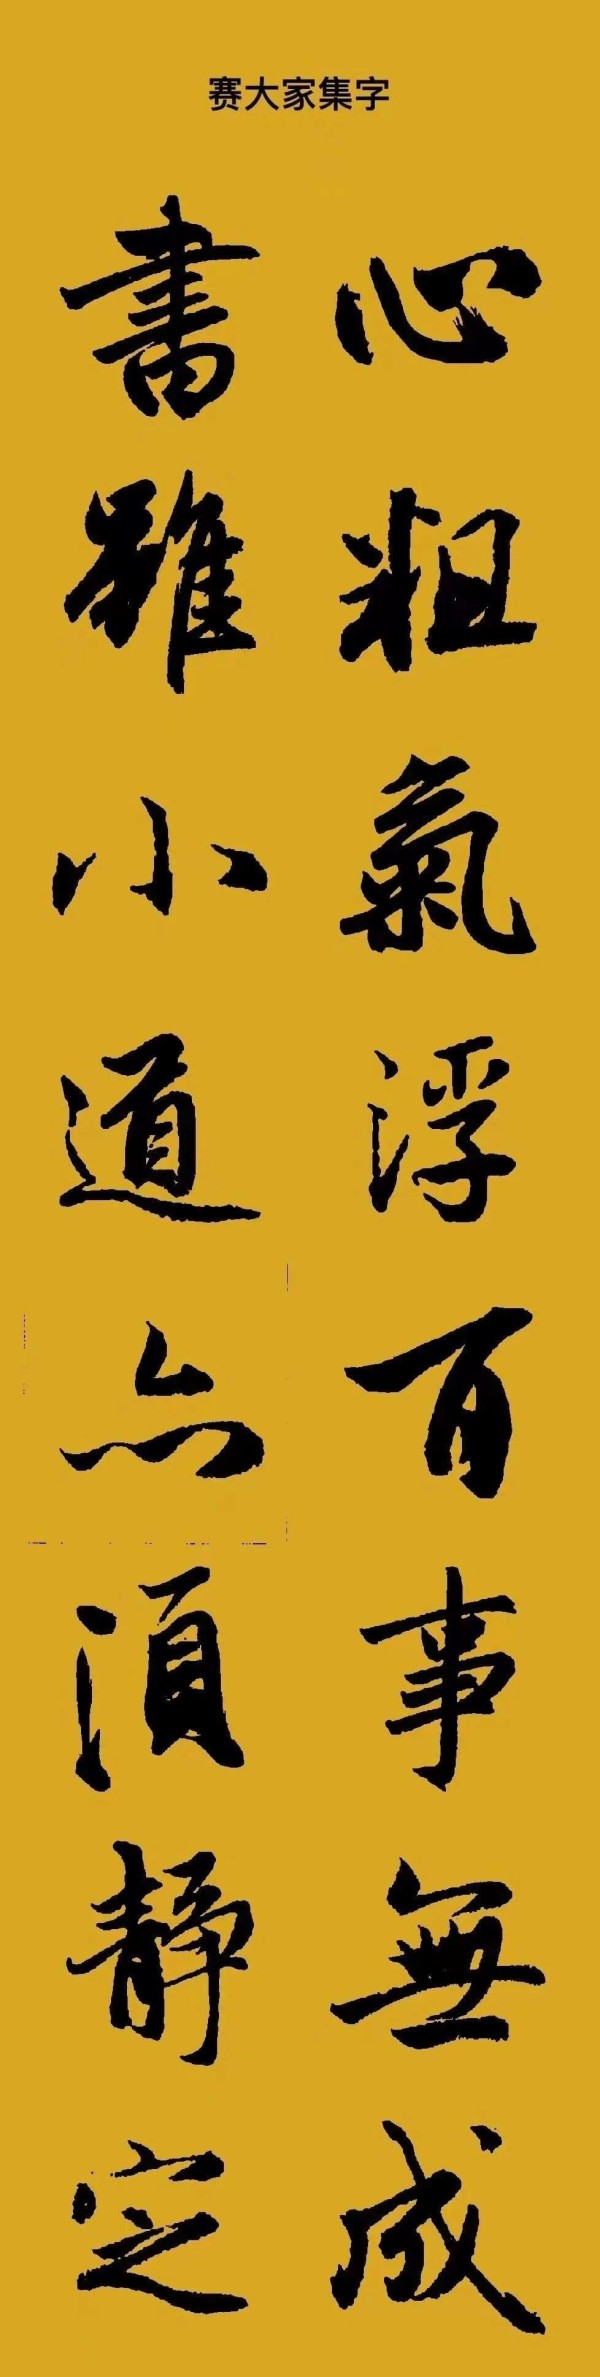 赛大家集字
心粗氣浮百事無成
書雖小道亦須静定